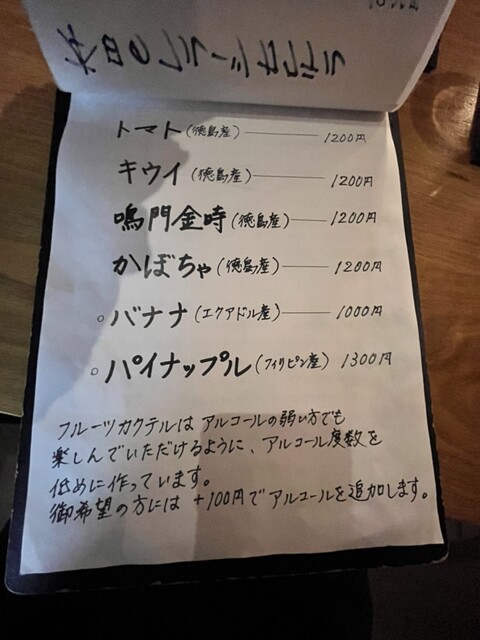 トマト(徳島産) 1200円
キウイ(徳島産) 1200円
鳴門金時(徳島産) 1200円
かぼちゃ(徳島産) 1200円
○バナナ(エクアドル産) 1000円
○パイナップル(フィリピン産) 1300円
フルーツカクテルは アルコールの弱い方でも
楽しんでいただけるように、アルコール度数を
低めに作っています。
御希望の方には +100円でアルコールを追加します。